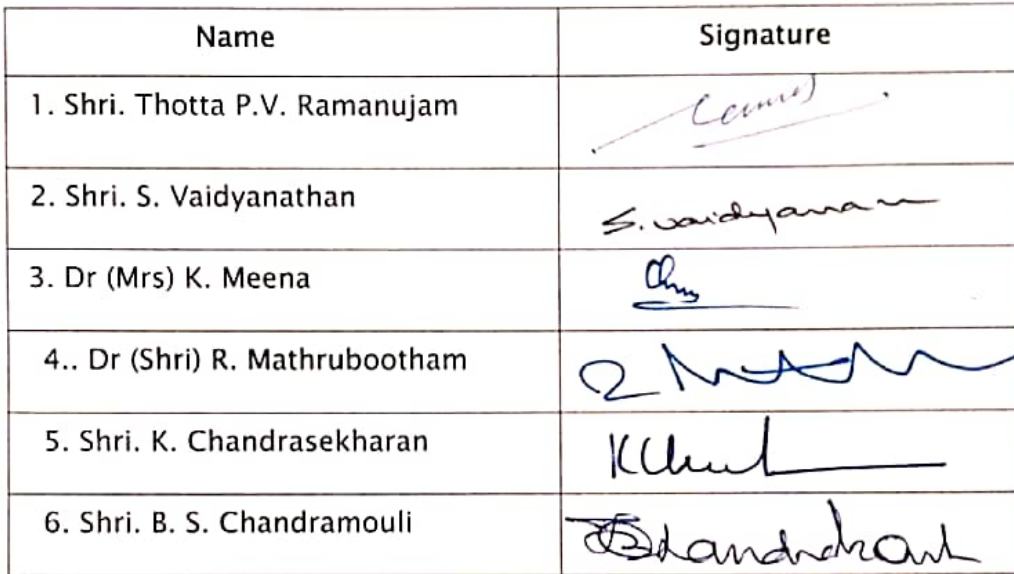 Name Signature
1. Shri. Thotta P.V. Ramanujam
2. Shri. S. Vaidyanathan S. vaidyanan
3. Dr (Mrs) K. Meena
4.. Dr (Shri) R. Mathrubootham
5. Shri. K. Chandrasekharan
6. Shri. B. S. Chandramouli